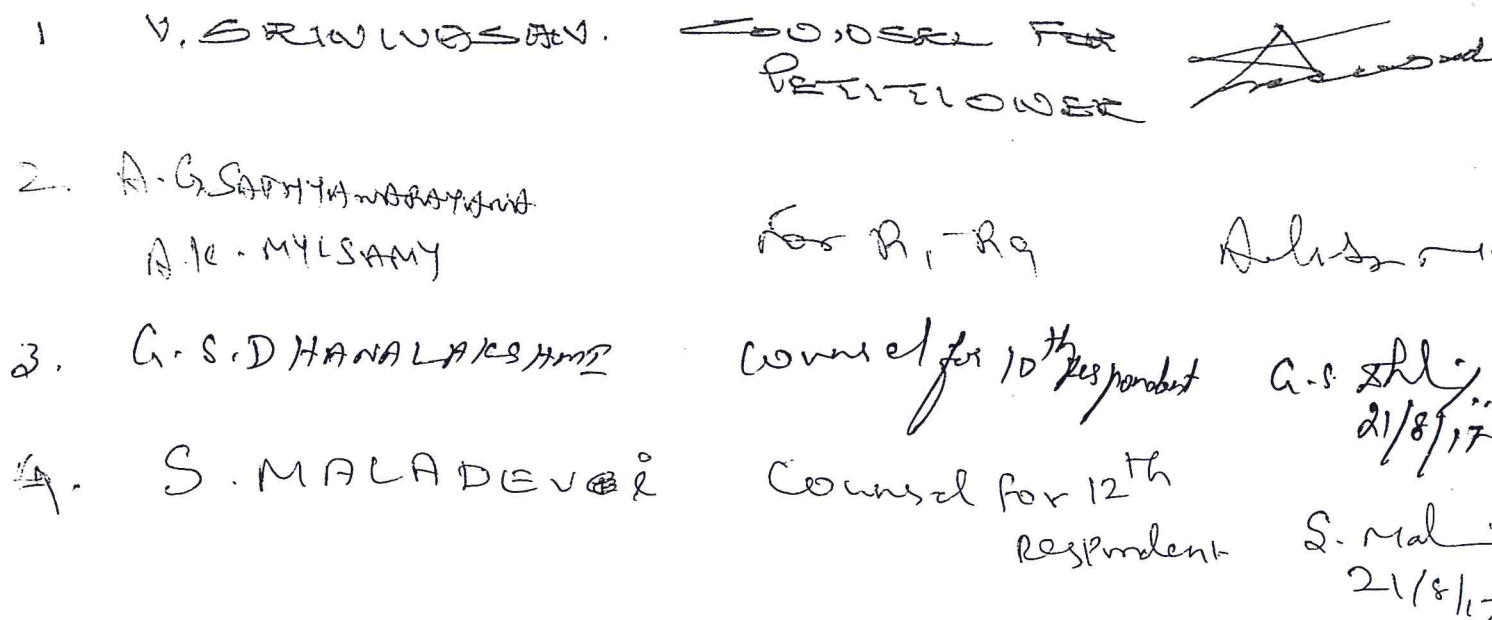 1 V. SRINIVASAN. COUNSEL FOR
PETITIONER
2. A.G. SATHYANARAYANA
A.K. MYLSAMY for R1-R9
3. G.S. DHANALAKSHMI Counsel for 10th Respondent G.S. 
21/8/17
4. S. MALADEVI Counsel for 12th
Respondent S. Mal
21/8/17